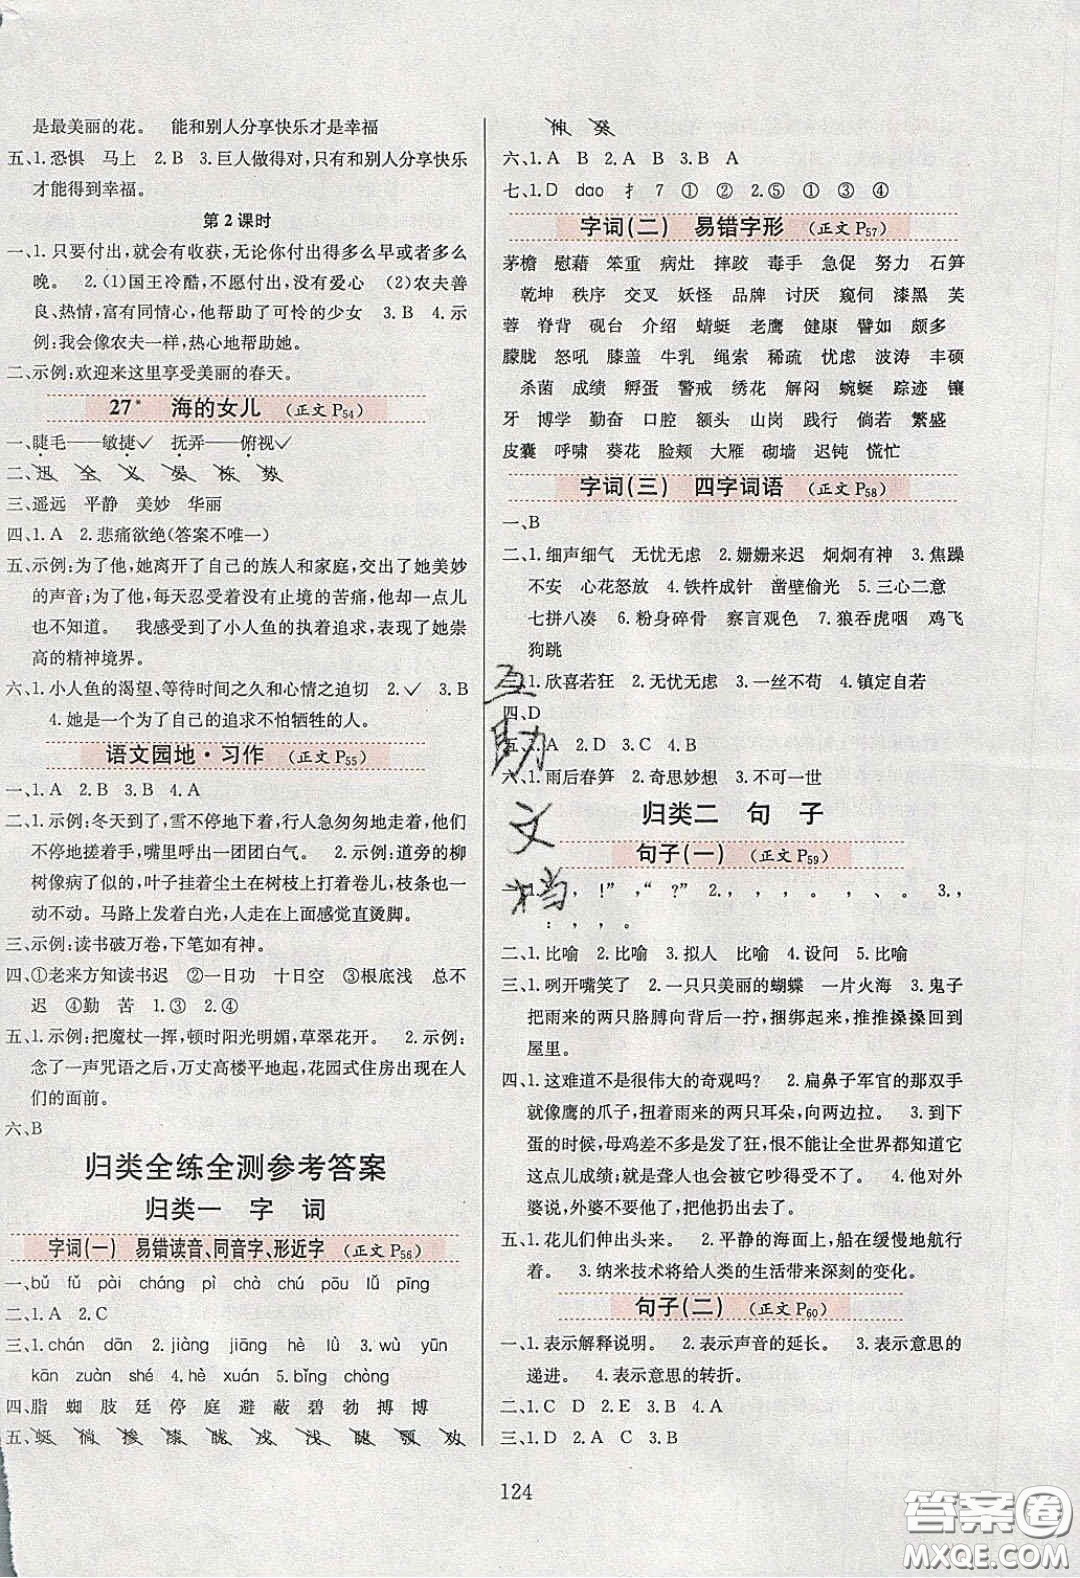 是最美丽的花。 能和别人分享快乐才是幸福
五、1.恐惧 马上 2.B 3.巨人做得对,只有和别人分享快乐
才能得到幸福。
第2课时
一、1.只要付出,就会有收获,无论你付出得多早或者多么
晚。 2.(1)国王冷酷,没有爱心 (2)农夫善
良、热情,富有同情心,他帮助了可怜的少女 3.B 4.示
例:我会像农夫一样,热心地帮助她。
二、示例:欢迎来这里享受美丽的春天。
27* 海的女儿 (正文P54)
一、睫毛——敏捷✓ 抚弄——俯视✓
二、迅 全 义 晏 栋 势
三、遥远 平静 美妙 华丽
四、1.A 2.悲痛欲绝(答案不唯一)
五、示例:为了他,她离开了自己的族人和家庭,交出了她美妙
的声音;为了他,每天忍受着没有止境的苦痛,他却一点儿
也不知道。 我感受到了小人鱼的执着追求,表现了她崇
高的精神境界。
六、1.小人鱼的渴望、等待时间之久和心情之迫切 2.✓ 3.B
4.她是一个为了自己的追求不怕牺牲的人。
语文园地·习作 (正文P55)
一、1.A 2.B 3.B 4.A
二、1.示例:冬天到了,雪不停地下着,行人急匆匆地走着,他们
不停地搓着手,嘴里呼出一团团白气。 2.示例:道旁的柳
树像病了似的,叶子挂着尘土在树枝上打着卷儿,枝条一
动不动。马路上发着白光,人们踩在上面感觉直烫脚。
三、示例:读书破万卷,下笔如有神。
四、①老来方知读书迟 ②一日功 十日空 ③根底浅 总不
迟 ④勤 苦 1.③ 2.④
五、1.示例:把魔杖一挥,顿时阳光明媚,草翠花开。 2.示例:
念了一声咒语之后,万丈高楼平地起,花园式住房出现在人
们的面前。
六、B
归类全练全测参考答案
归类一 字 词
字词(一) 易错读音、同音字、形近字 (正文P56)
一、bǔ fǔ pài cháng pì chà chú pōu lǚ pīng
二、1.A 2.C
三、1.chán dān 2.jiàng jiāng hè lǜ 3.wù yūn
kān zuàn shé 4.hè xuán 5.bǐng chòng
四、脂 蜘 肢 廷 停 庭 避 蔽 碧 勃 搏 博
五、蜓 徜 掺 膝 眬 戎 浅 睫 颚 欢
伸 癸
六、1.A B 2.A B 3.B A
七、1.D dao 扌 7 ① ② 2.⑤ ① ③ ④
字词(二) 易错字形 (正文P57)
茅檐 慰藉 笨重 病灶 摔跤 毒手 急促 努力 石笋
乾坤 秩序 交叉 妖怪 品牌 讨厌 窥伺 漆黑 芙
蓉 脊背 砚台 介绍 蜻蜓 老鹰 健康 譬如 颇多
朦胧 怒吼 膝盖 牛乳 绳索 稀疏 忧虑 波涛 丰硕
杀菌 成绩 孵蛋 警戒 绣花 解闷 蜿蜒 踪迹 镶
牙 博学 勤奋 口腔 额头 山岗 践行 倘若 繁盛
皮囊 呼啸 葵花 脸颊 大雁 砌墙 迟钝 慌忙
字词(三) 四字词语 (正文P58)
一、B
二、1.细声细气 无忧无虑 2.姗姗来迟 炯炯有神 3.焦躁
不安 心花怒放 4.铁杵成针 凿壁偷光 5.三心二意
七拼八凑 6.粉身碎骨 察言观色 7.狼吞虎咽 鸡飞
狗跳
三、1.欣喜若狂 2.无忧无虑 3.一丝不苟 4.镇定自若
四、D
五、1.A 2.D 3.C 4.B
六、1.雨后春笋 2.奇思妙想 3.不可一世
归类二 句 子
句子(一) (正文P59)
一、1., !”,“ ?” 2., , , 。 , 、 。 3.,
: , , 。
二、1.比喻 2.比喻 3.拟人 比喻 4.设问 5.比喻
三、1.咧开嘴笑了 2.一只只美丽的蝴蝶 一片火海 3.鬼子
把雨来的两只胳膊向背后一拧,捆绑起来,推推搡搡回到
屋里。
四、1.这难道不是很伟大的奇观吗? 2.扁鼻子军官的那双手
就像鹰的爪子,扭着雨来的两只耳朵,向两边拉。 3.到下
蛋的时候,母鸡差不多是发了狂,恨不能让全世界都知道它
这点儿成绩;就是聋人也会被它吵得受不了。 4.他对外
婆说,外婆不要的话,他便扔出去了。
五、1.花儿们伸出头来。 2.平静的海面上,船在缓慢地航行
着。 3.纳米技术将给人类的生活带来深刻的变化。
句子(二) (正文P60)
一、1.表示解释说明。 2.表示声音的延长。 3.表示意思的
递进。 4.表示意思的转折。
二、1.C D 2.E 3.B 4.A
三、1.D 2.A C 3.B
124
互助文档
答案圈
MXQE.COM